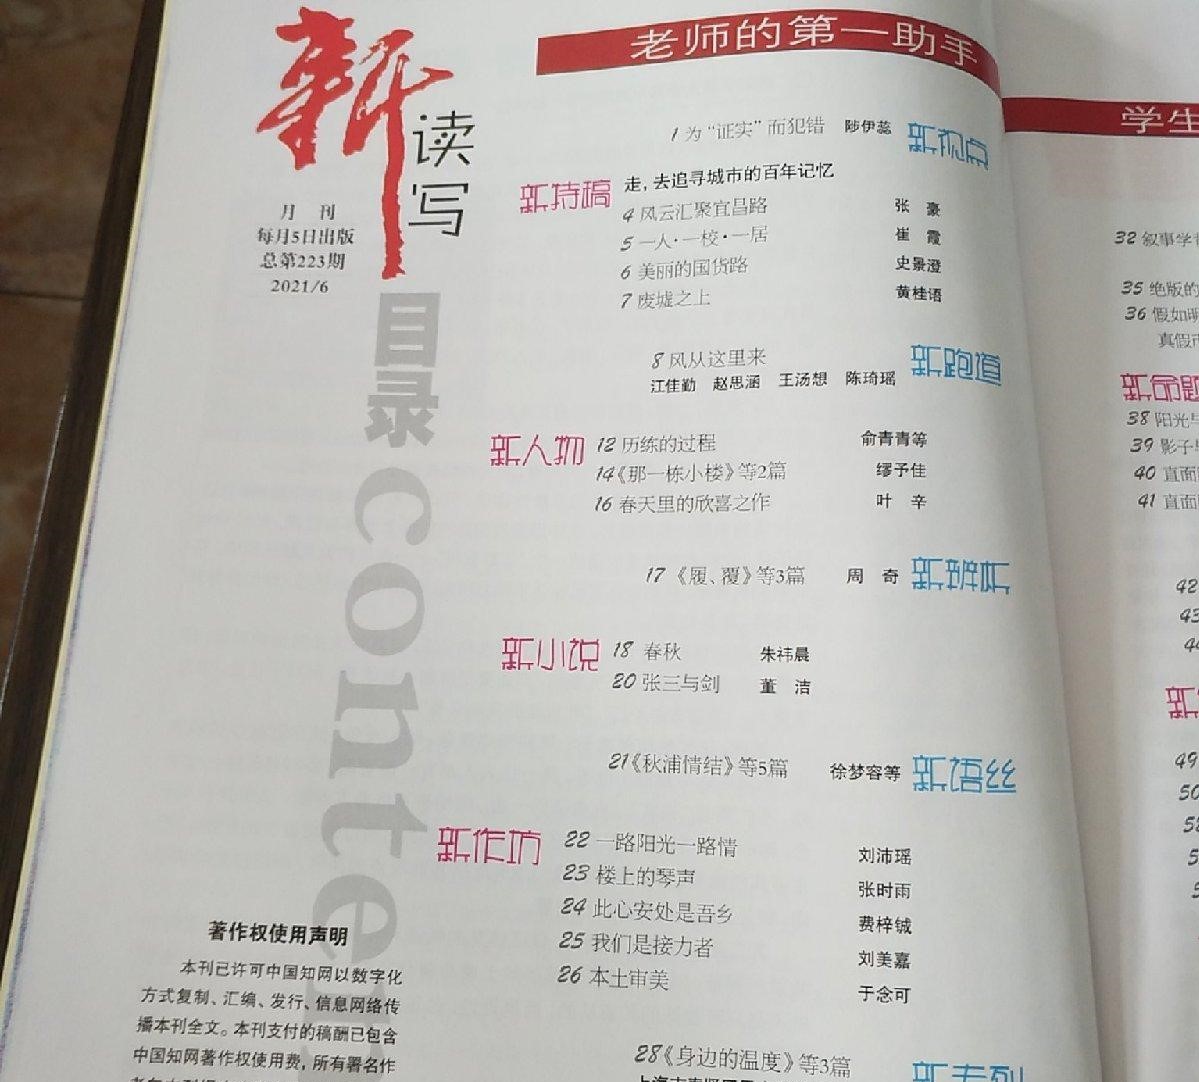 新读写
月 刊
每月5日出版
总第223期
2021/6
目录 conte
老师的第一助手
1 为“证实”而犯错 陟伊蕊 新视点
新特稿 走，去追寻城市的百年记忆
4 风云汇聚宜昌路 张 豪
5 一人·一校·一居 崔 霞
6 美丽的国货路 史景澄
7 废墟之上 黄桂语
8 风从这里来 新跑道
江佳勤 赵思涵 王汤想 陈琦瑶
新人物 12 历练的过程 俞青青等
14《那一栋小楼》等2篇 缪予佳
16 春天里的欣喜之作 叶 辛
17 《履、覆》等3篇 周 奇 新班底
新小说 18 春秋 朱祎晨
20 张三与剑 董 洁
21《秋浦情结》等5篇 徐梦容等 新语丝
新作坊 22 一路阳光一路情 刘沛瑶
23 楼上的琴声 张时雨
24 此心安处是吾乡 费梓铖
25 我们是接力者 刘美嘉
26 本土审美 于念可
28《身边的温度》等3篇 新专列
著作权使用声明
本刊已许可中国知网以数字化
方式复制、汇编、发行、信息网络传
播本刊全文。本刊支付的稿酬已包含
中国知网著作权使用费，所有署名作
学生
32 叙事学
35 绝版的
36 假如
真假
新命题
38 阳光与
39 影子
40 直面
41 直面
42
43
44
新
49
50